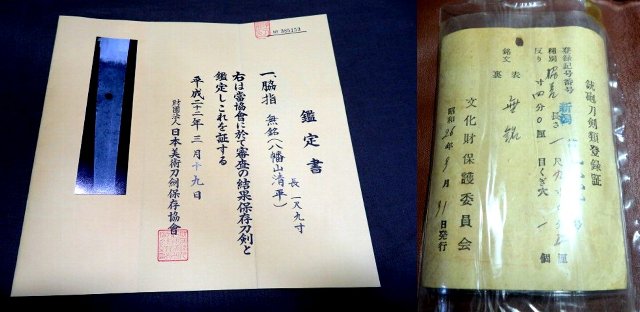 鑑定書
一、脇指 無銘(八幡山清平)
長 一尺九寸
右は當協會に於て審査の結果保存刀剣と
鑑定しこれを証する
平成二十二年三月十九日
財団法人 日本美術刀剣保存協會
銃砲刀剣類登録証
登録記号番号 新潟
種別 脇差 長さ 一尺九寸
反り 寸四分0厘 目くぎ穴 1個
銘文 表 無銘
裏
文化財保護委員会
昭和26年3月31日発行